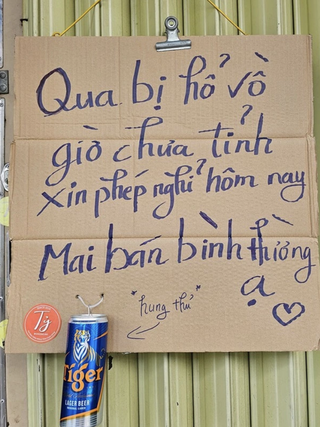 Qua bị hổ vồ
giờ chưa tỉnh
xin phép nghỉ hôm nay
Mai bán bình thường
ạ
"hung thủ"
Tj
Tiger
LAGER BEER